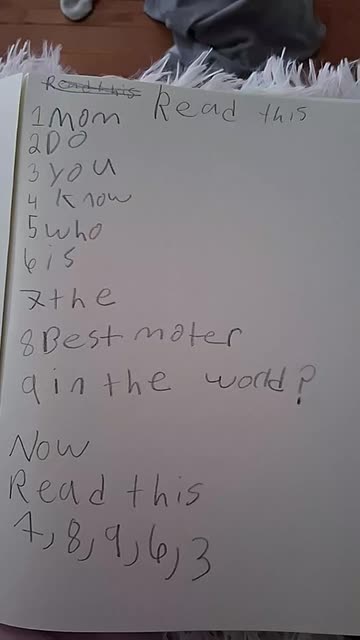 Read this
1 Mom Read this
2 DO
3 you
4 know
5 who
6 is
7 the
8 Best moter
9 in the world?
Now
Read this
7, 8, 9, 6, 3